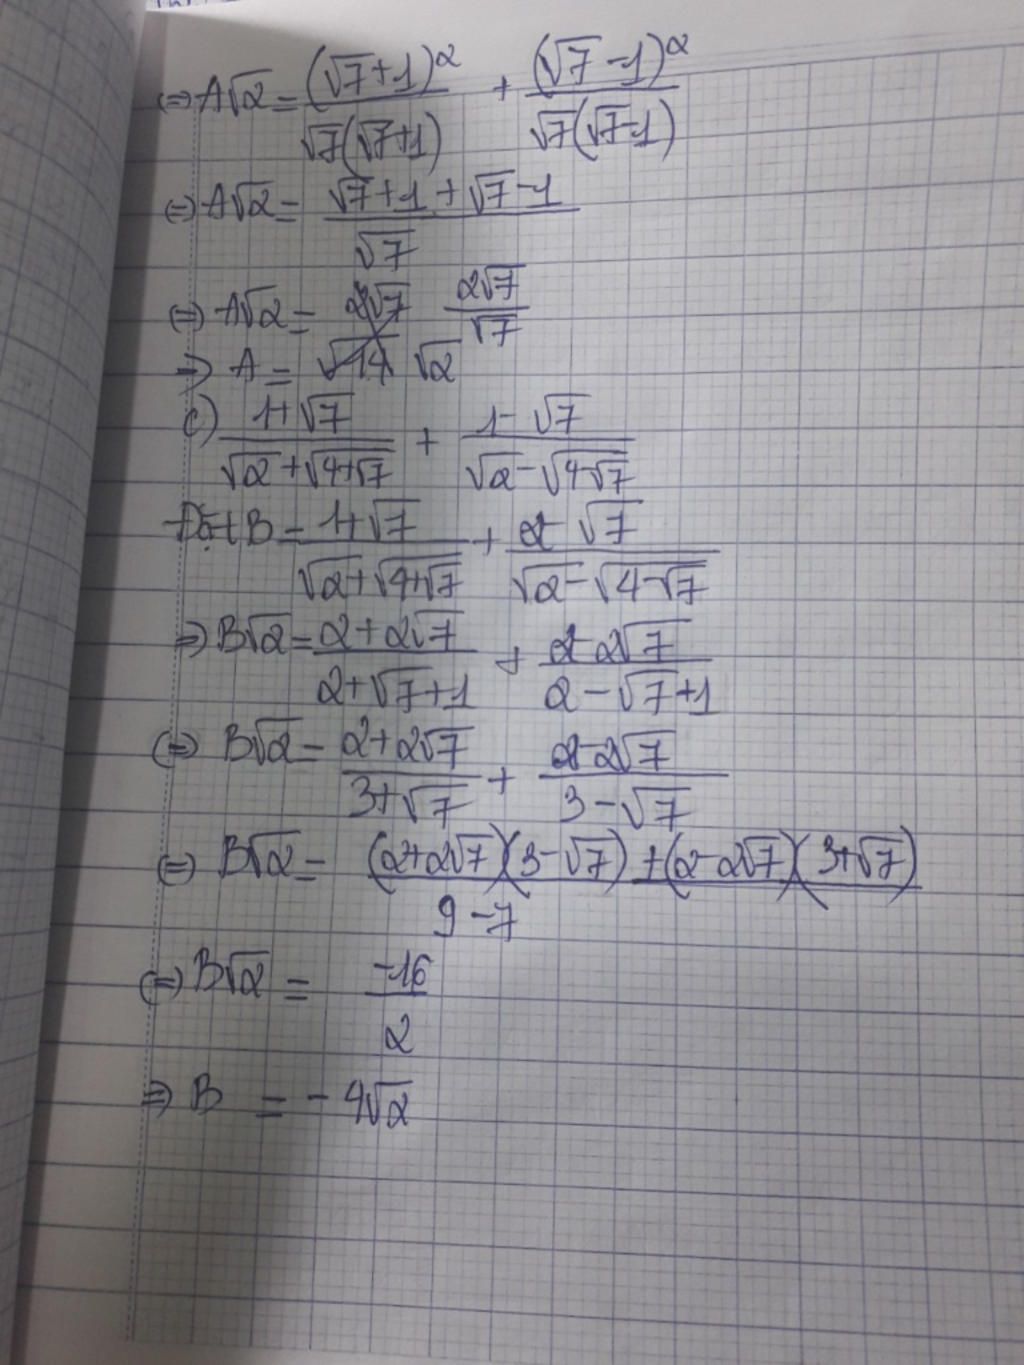 ⇔ A√2 = (√7+1)²/(√7(√7+1)) + (√7-1)²/(√7(√7-1))
⇔ A√2 = (√7+1+√7-1)/√7
⇔ A√2 = 2√7/√7
⇒ A = √2
c) (1+√7)/(√2+√(4+√7)) + (1-√7)/(√2-√(4-√7))
Đặt B = (1+√7)/(√2+√(4+√7)) + (1-√7)/(√2-√(4-√7))
⇒ B√2 = (2+2√7)/(2+√7+1) + (2-2√7)/(2-√7+1)
⇔ B√2 = (2+2√7)/(3+√7) + (2-2√7)/(3-√7)
⇔ B√2 = ((2+2√7)(3-√7)+(2-2√7)(3+√7))/(9-7)
⇔ B√2 = -16/2
⇒ B = -4√2